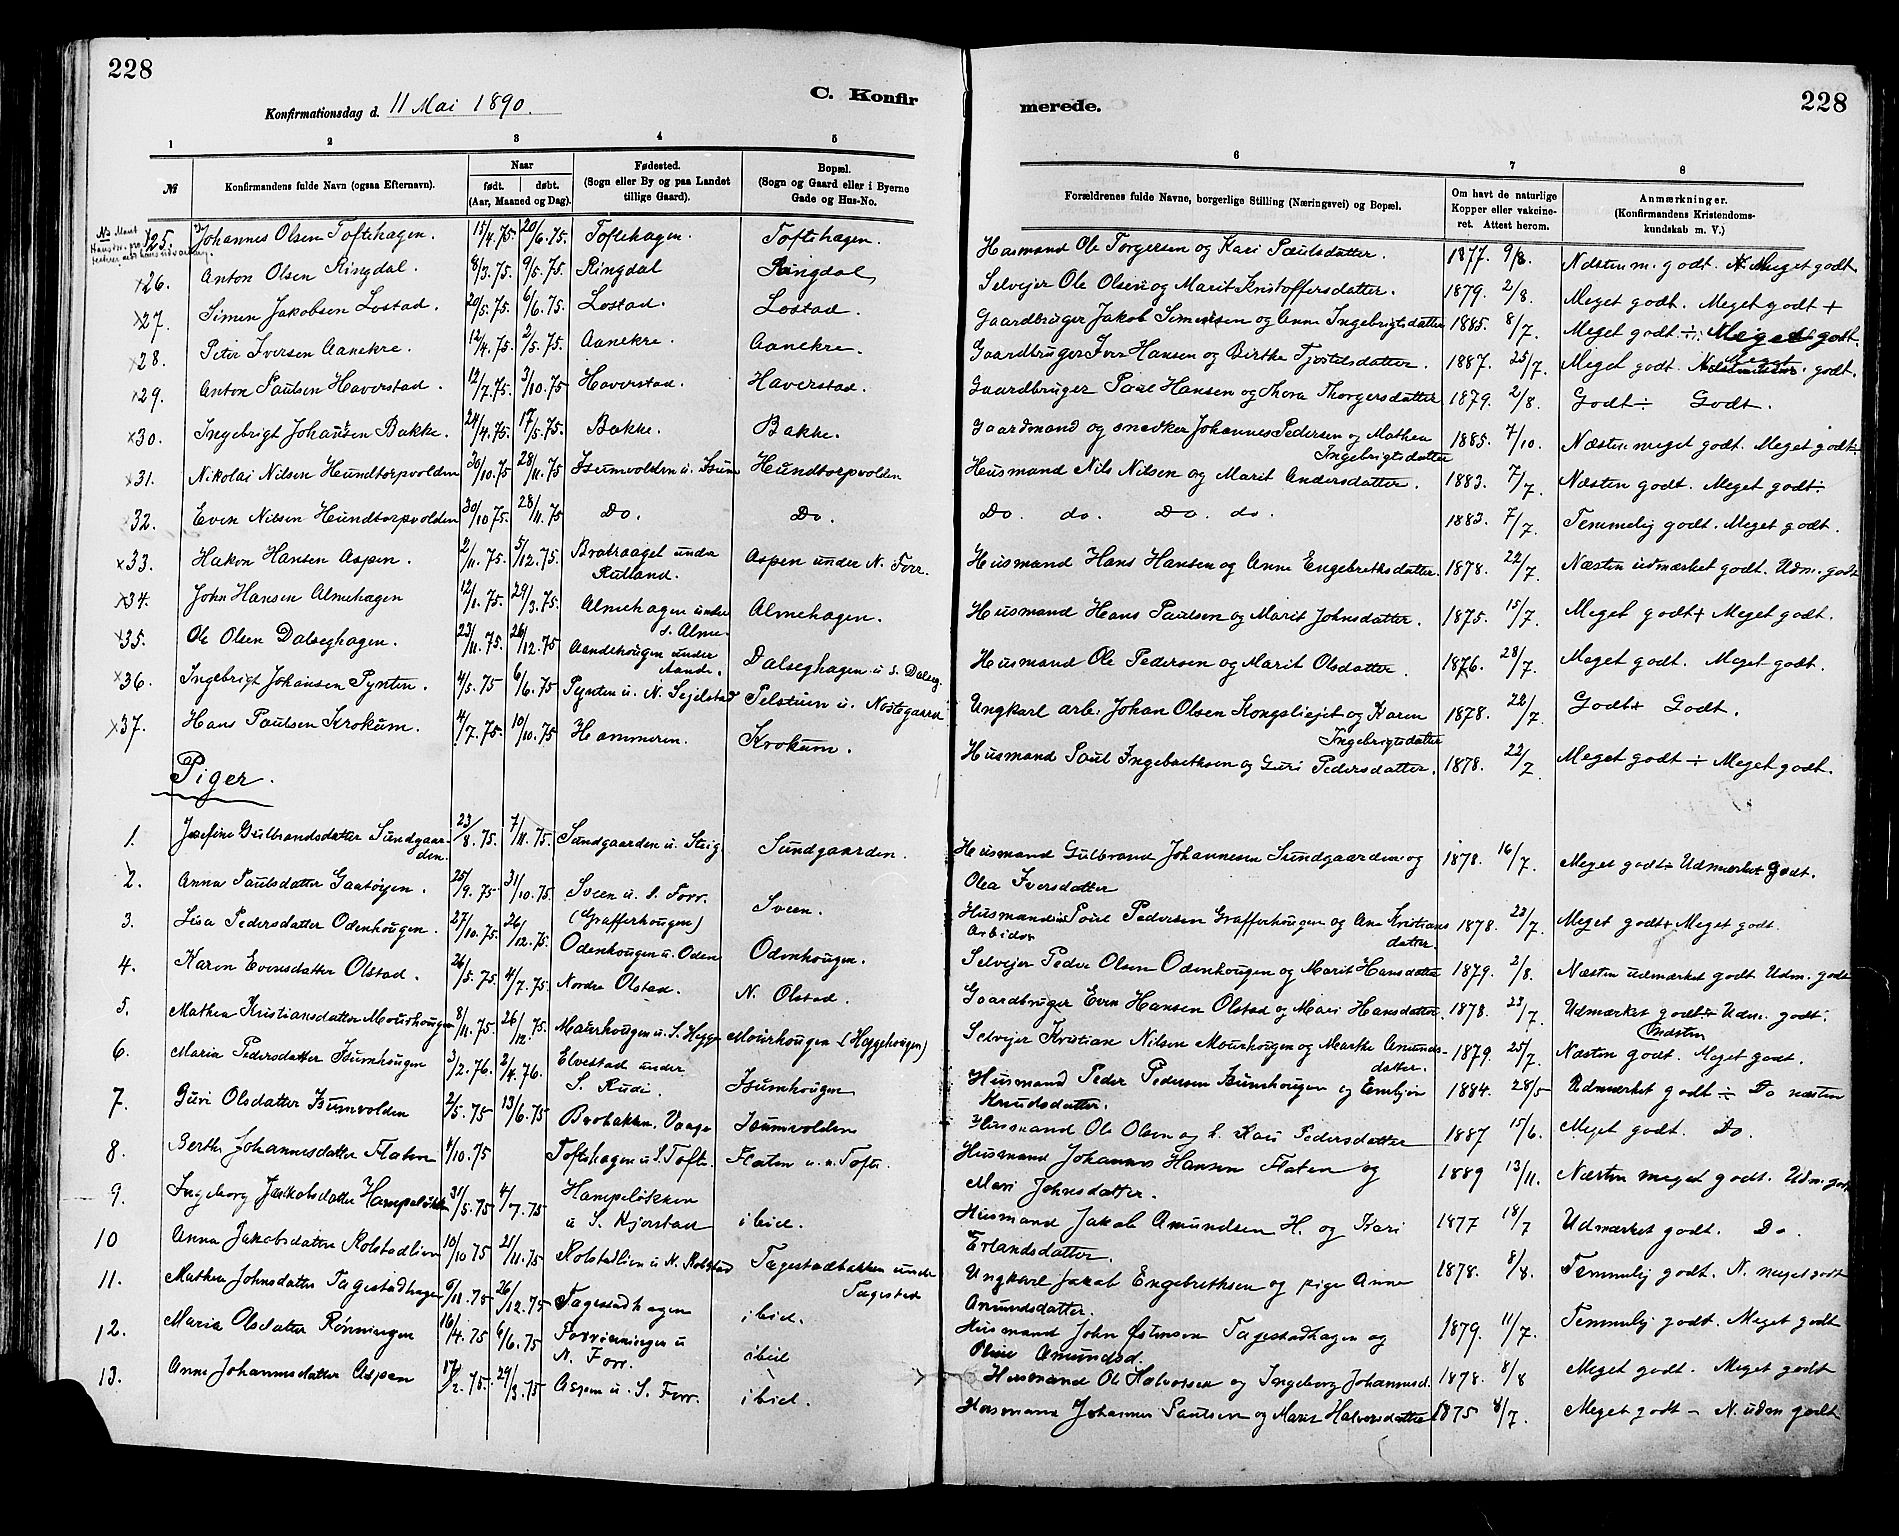 228
Konfirmationsdag d. 11 Mai 1890.
C. Konfir
1 2 3 4 5
№ Konfirmandens fulde Navn (ogsaa Efternavn). Naar født. døbt. (Aar, Maaned og Dag). Fødested. (Sogn eller By og paa Landet tillige Gaard). Bopæl. (Sogn og Gaard eller i Byerne Gade og Hus-No.
25. Johannes Olsen Toftehagen. 15/4. 75. 20/6. 75. Toftehagen. Toftehagen.
x26. Anton Olsen Ringdal. 8/3. 75. 9/5. 75. Ringdal Ringdal
x27. Simen Jakobsen Lostad. 20/5. 75. 6/6. 75. Lostad. Lostad.
x28. Peter Iversen Aanekre. 12/4. 75. 2/5. 75. Aanekre. Aanekre.
x29. Anton Paulsen Haverstad. 12/7. 75. 3/10. 75 Haverstad. Haverstad.
x30. Ingebrigt Johansen Bakke. 24/4. 75. 17/5. 75. Bakke. Bakke.
x31. Nikolai Nilsen Hundtorpvolden 30/10. 75 28/11. 75 Isumvolden u. Isum Hundtorpvolden
x32. Even Nilsen Hundtorpvolden 30/10 75. 28/11. 75 Do. Do.
x33. Hakon Hansen Aspen. 2/11. 75. 5/12. 75. Bratraaget under Rutland. Aspen under N. Forr.
x34. John Hansen Almehagen 12/1. 75. 29/3. 75. Almehagen under s. Alme. Almehagen.
x35. Ole Olsen Dalseghagen. 23/11. 75. 26/12. 75 Aandehougen under Aande. Dalseghagen u s. Dalseg.
x36. Ingebrigt Johansen Pynten. 4/5. 75 6/6. 75 Pynten u. N. Sejelstad Pelstuen u. Nostegaard
x37. Hans Paulsen Krokum. 4/7. 75. 10/10. 75 Hammeren. Krokum.
Piger.
1. Josefine Gulbrandsdatter Sundgaarden. 23/8. 75. 7/11. 75. Sundgaarden u. Steig. Sundgaarden.
2. Anna Paulsdatter Gaatøien. 25/9. 75. 31/10. 75. Sveen u. S. Forr. (Grafferhougen) Sveen.
3. Lisa Pedersdatter Odenhougen. 27/10. 75. 26/12. 75. Odenhougen u. Oden Odenhougen.
4. Karen Evensdatter Olstad. 26/5. 75. 4/7. 75. Nordre Olstad. N. Olstad.
5. Mathea Kristiansdatter Mourhougen 8/11. 75. 26/12. 75. Maurhougen u. S. Hegge Mourhougen (Heggehougen)
6. Maria Pedersdatter Isumhougen 3/2. 76. 2/4. 76. Elvestad under S. Rudi. Isumhougen
7. Guri Olsdatter Isumvolden 2/5. 75 13/6. 75 Brobakken. Vaage Isumvolden
8. Berthe Johannesdatter Flaten 4/10. 75 Toftehagen u S. Tofte. Flaten u. n. Tofte.
9. Ingeborg Jakobsdatter Hampeløkken 31/5. 75 4/7. 75 Hampeløkken u S. Kjorstad ibid.
10 Anna Jakobsdatter Rolstadlien 10/10 75 21/11. 75 Rolstadlien u N. Rolstad Tagestadbakken under Tagestad
11. Mathea Johnsdatter Tagestadhagen 9/11. 75 26/12. 75 Tagestadhagen ibid.
12. Maria Olsdatter Rønningen 16/4. 75 6/6. 75 Forrønningen u N. Forr. ibid
13. Anne Johannesdatter Aspen 17/2. 75. 29/3. 75 Aspen u. S. Forr. ibid.
merede.
228
6 7 8
Forældrenes fulde Navne, borgerlige Stilling (Næringsvei) og Bopæl. Om havt de naturlige Kopper eller vakcineret. Attest herom. Anmærkninger. (Konfirmandens Kristendomskundskab m. V.)
Husmand Ole Torgersen og Kari Paulsdatter. 1877. 9/8. Næsten m. godt. N. Meget godt
Selvejer Ole Olsen og Marit Kristoffersdatter. 1879. 2/8. Meget godt. Meget godt +
Gaardbruger Jakob Simensen og Anne Ingebrigtsdatter 1885. 8/7. Meget godt ÷ Meget godt.
Gaardbruger Iver Hansen og Birthe Tjostelsdatter. 1887. 25/7. Meget godt. Meget godt.
Gaardbruger Paul Hansen og Thora Thorgersdatter 1879. 2/8. Godt ÷ Godt.
Gaardmand og snedker Johannes Pedersen og Mathea Ingebrigtsdatter 1885. 7/10. Næsten meget godt. Meget godt
Husmand Nils Nilsen og Marit Andersdatter. 1883. 7/7. Næsten godt. Meget godt ÷
Do. do. Do. do. 1883. 7/7. Temmelig godt. Meget godt.
Husmand Hans Hansen og Anne Engebrethsdatter. 1878. 22/7. Næsten udmærket godt. Udm. godt
Husmand Hans Paulsen og Marit Johnsdatter. 1875. 15/7. Meget godt + Meget godt.
Husmand Ole Pedersen og Marit Olsdatter. 1876. 28/7. Meget godt. Meget godt.
Ungkarl arb. Johan Olsen Kongsliejet og Karen Ingebrigtsdatter 1878. 22/7. Godt + Godt.
Husmand Paul Ingebrethsen og Guri Pedersdatter. 1878. 22/7. Meget godt ÷ Meget godt.
Husmand Gulbrand Johannesen Sundgaarden og Olea Iversdatter 1878. 16/7. Meget godt ÷ Udmærket godt.
Husmand Arbider Paul Pedersen Grafferhougen og Ane Kristiansdatter. 1878. 22/7. Meget godt + Meget godt.
Selvejer Peder Olsen Odenhougen og Marit Hansdatter 1879. 2/8. Næsten udmærket godt Udm. godt
Gaardbruger Even Hansen Olstad og Mari Hansdatter. 1878. 23/7. Udmærket godt ÷ Udm. godt.
Selvejer Kristian Nilsen Mourhougen og Marthe Amundsdatter. 1879. 25/7. Næsten godt. (næsten Meget godt.
Husmand Peder Pedersen Isumhougen og Embjør Knudsdatter. 1884. 28/5 Udmærket godt ÷ Do næsten
Husmand Ole Olsen og h. Kari Pedersdatter 1887 15/6. Meget godt. Do.
Husmand Johannes Hansen Flaten og Mari Johnsdatter. 1889 13/11. Næsten meget godt. Udm. godt
Husmand Jakob Amundsen H. og Kari Erlandsdatter. 1877 18/7 Udmærket godt. Do.
Ungkarl Jakob Engebrethsen og pige Anne Amundsdatter. 1878. 8/8. Temmelig godt. N. meget godt
Husmand John Østensen Tagestadhagen og Oline Amundsd. 1879. 11/7. Temmelig godt. Meget godt
Husmand Ole Halvorsen og Ingeborg Johannesd. 1878. 8/8 Meget godt. Meget godt
Husmand Johannes Paulsen og Marit Halvorsdatter 1875 8/7. Meget godt – N. udm godt